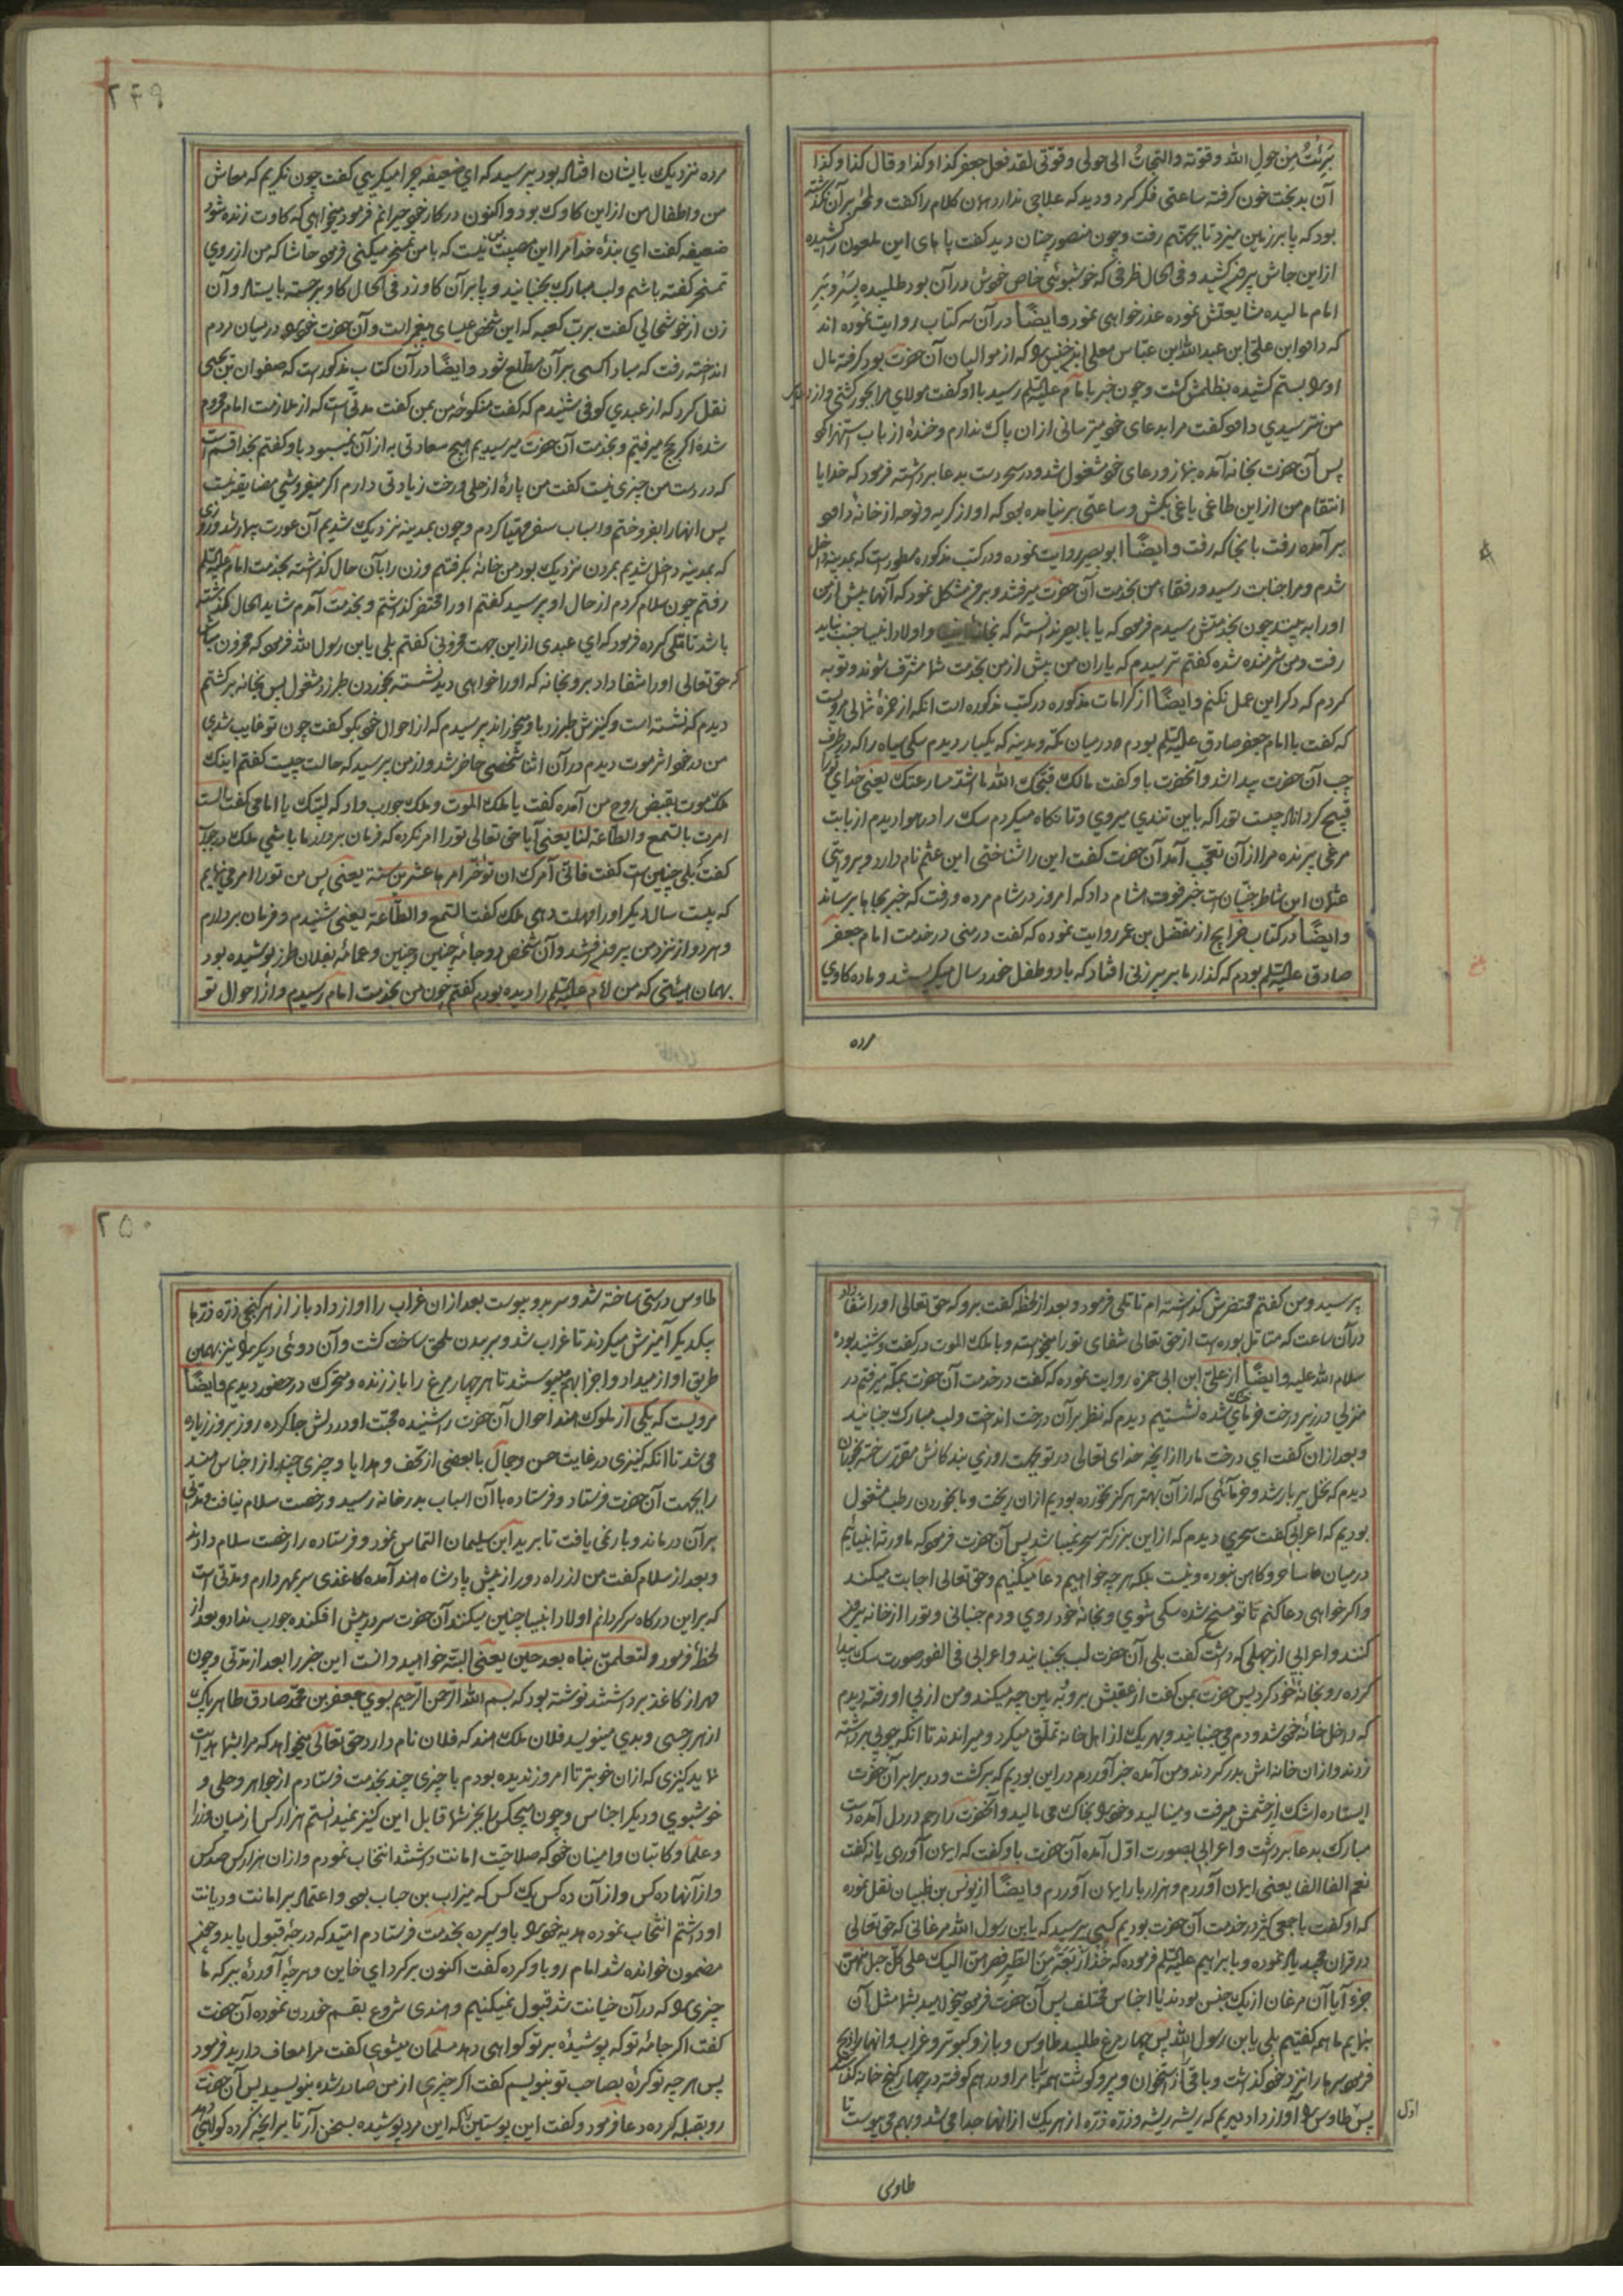 برئتُ مِن حول الله وقوّته والتجأتُ الی حولی وقوّتی لقد فعل جعفر کذا وکذا وقال کذا وکذا
آن بدبخت خون گرفته ساعتی فکر کرد و دید که علاجی ندارد همان کلام را گفت و لمحهٔ بر آن نگذشته
بود که پا بر زمین میزد تا بجهنم رفت و چون منصور چنان دید گفت پاهای این ملعون را کشیده
از این جا بیرون کشید و فی الحال ظرفی که خوشبوئی خاص خوش در آن بود طلبیده بسَر و بَر
امام مالیده مشایعتش نموده عذرخواهی نمود وایضًا در آن سه کتاب روایت نموده اند
که داود ابن علی ابن عبد الله ابن عباس معلی ابن خنیس را که از موالیان آن حضرت بود گرفته مال
او را بستم کشیده بظلمش کشت و چون خبر بامام علیه السلم رسید باو گفت مولای مرا بجور کشتی و از
من نترسیدی داود گفت مرا بدعای خود میترسانی از ان باک ندارم و خندهٔ از باب استهزا کرد
پس آن حضرت بخانه آمده بنماز و دعای خود مشغول شد و در سحر دست بدعا برداشته فرمود که خدایا
انتقام من از این طاغی یاغی بکش و ساعتی بر نیامده بود که اواز گریه و نوحه از خانهٔ داود
برآمده رفت بانجا که رفت وایضًا ابو بصیر روایت نموده و در کتب مذکوره مسطور است که بمدینه داخل
شدم و مرا جنابت رسید و رفقاء من بخدمت آن حضرت میرفتند و بر من مشکل نمود که آنها پیش از من
او را به بینند چون بخدمتش رسیدم فرمود که یا با بصیر ندانستهٔ که بخانهٔ انبیا و اولاد انبیا جنب نباید
رفت و من شرمنده شده گفتم ترسیدم که یاران من پیش از من بخدمت شما مشرف شوند و توبه
کردم که دگر این عمل نکنم وایضًا از کرامات مذکوره در کتب مذکوره است انکه از حمزهٔ ثمالی مرویست
که گفت با امام جعفر صادق علیه السلم بودم در میان مکه و مدینه که یکبار دیدم سگی سیاه را که در طرف
چپ آن حضرت پیدا شد و آنحضرت باو گفت مالک قبّحک الله ما اشدّ مسارعتک یعنی خدای تورا
قبیح گرداند چیست تورا که باین تندی میروی و تا نگاه میکردم سگ را در هوا دیدم از بابت
مرغی پرنده مرا از آن تعجب آمد آن حضرت گفت این را شناختی این عثم نام دارد و بروایتی
عثمان این شاطر جنّیان است خبر فوت هشام داد که امروز در شام مرده و رفت که خبر بجاها برساند
وایضًا در کتاب خرایج از مفضل بن عمر روایت نموده که گفت در منی در خدمت امام جعفر
صادق علیه السلم بودم که گذار ما بر پیرزنی افتاد که با دو طفل خورد سال میگریستند و ماده گاوی
مرده
۲۴۹
مرده نزدیک بایشان افتاده بود پرسید که ای ضعیفه چرا میگریی گفت چون نگریم که معاش
من و اطفال من از این گاوک بود و اکنون در کار خود حیرانم فرمود میخواهی که گاوت زنده شود
ضعیفه گفت ای بندهٔ خدا مرا این مصیبت بس نیست که با من تمسخر میکنی فرمود حاشا که من از روی
تمسخر گفته باشم و لب مبارک بجنبانید و پا بر آن گاو زد فی الحال گاو برجسته بایستاد و آن
زن از خوشحالی گفت برب کعبه که این شخص عیسای پیغمبر است و آن حضرت خود را در میان مردم
انداخته رفت که مبادا کسی بر آن مطلع شود وایضًا در آن کتاب مذکور است که صفوان بن یحیی
نقل کرد که از عبدی کوفی شنیدم که گفت منکوحهٔ من بمن گفت مدتی است که از ملازمت امام محروم
شده اگر بحج میرفتیم و بخدمت آن حضرت میرسیدیم هیچ سعادتی به از آن نمیبود باو گفتم بخدا قسم است
که در دست من چیزی نیست گفت من پارهٔ از حلی و رخت زیادتی دارم اگر میفروشی مضایقه نیست
پس انها را بفروختم و اسباب سفر مهیا کردم و چون بمدینه نزدیک شدیم آن عورت بیمار شد و روزی
که بمدینه داخل شدیم بمردن نزدیک بود من خانهٔ بگرفتم و زن را بآن حال گذاشته بخدمت امام علیه السلم
رفتم چون سلام کردم از حال او پرسید گفتم او را محتضر گذاشتم و بخدمت آمدم شاید الحال گذشته
باشد تاملی کرده فرمود که ای عبدی از این جهت محزونی گفتم بلی یابن رسول الله فرمود که محزون مباش
که حق تعالی او را شفا داد برو بخانه که او را خواهی دید نشسته بخوردن طبرزد مشغول پس بخانه برگشتم
دیدم که نشسته است و کنیزش طبرزد باو میخوراند پرسیدم که از احوال خود بگو گفت چون تو غایب شدی
من در خود اثر موت دیدم در آن اثنا شخصی حاضر شد و از من پرسید که حالت چیست گفتم اینک
ملک موت بقبض روح من آمده گفت یا ملک الموت و ملک جواب داد که لبّیک یا امامی گفت الست
امرت بالسّمع والطّاعة لنا یعنی آیا حق تعالی تورا امر نکرده که فرمان بردار ما باشی ملک در جواب
گفت بلی چنین است گفت فانّی آمرک ان تؤخّر امرها عشرین سنة یعنی پس من تورا امر میفرمایم
که بیست سال دیگر او را مهلت دهی ملک گفت السّمع والطّاعة یعنی شنیدم و فرمان بردارم
و هر دو از نزد من بیرون رفتند و آن شخص دو جامهٔ چنین و چنین و عمامهٔ بفلان طرز پوشیده بود
بهمان هیئتی که من امام علیه السلم را دیده بودم گفتم چون من بخدمت امام رسیدم و از احوال تو
۲۵۰
پرسید و من گفتم محتضرش گذاشته ام تاملی فرمود و بعد از لحظهٔ گفت برو که حق تعالی او را شفا داد
در آن ساعت که متامل بوده است از حق تعالی شفای تورا میخواسته و با ملک الموت در گفت و شنید بوده
سلام الله علیه وایضًا از علی ابن ابی حمزه روایت نموده که گفت در خدمت آن حضرت بمکه میرفتم در
منزلی در زیر درخت خرمای خشک شده نشستیم دیدم که نظر بر آن درخت انداخت و لب مبارک جنبانید
و بعد از ان گفت ای درخت ما را از انچه خدای تعالی در تو جهت روزی بندگانش مقرر ساخته بخوران
دیدم که نخل پر بار شد و خرمائی که از آن بهتر هرگز نخورده بودیم از ان ریخت و ما بخوردن رطب مشغول
بودیم که اعرابی گفت سحری دیدم که از این بزرگتر سحر نمیباشد پس آن حضرت فرمود که ما ورثه انبیائیم
در میان ما ساحر و کاهن نبوده و نیست بلکه هر چه خواهیم دعا میکنیم و حق تعالی اجابت میکند
و اگر خواهی دعا کنم تا تو مسخ شده سگی شوی و بخانهٔ خود روی و دم جنبانی و تورا از خانه بیرون
کنند و اعرابی از جهلی که داشت گفت بلی آن حضرت لب بجنبانید و اعرابی فی الفور صورت سگ پیدا
کرده رو بخانهٔ خود کرد پس حضرت بمن گفت از عقبش برو به بین چه میکند و من از پی او رفته دیدم
که داخل خانهٔ خود شد و دم می جنبانید و بهر یک از اهل خانه تملّق میکرد و میراندند تا انکه چوبی برداشته
زدند و از ان خانه اش بدر کردند و من آمده خبر آوردم در این بودیم که برگشت و در برابر آن حضرت
ایستاده اشک از چشمش میرفت و مینالید و خود را بخاک می مالید و آنحضرت را رحم در دل آمده دست
مبارک بدعا برداشت و اعرابی بصورت اوّل آمده آن حضرت باو گفت که ایمان آوردی یا نه گفت
نعم الفا الفا یعنی ایمان آوردم و هزار بار ایمان آوردم وایضًا از یونس بن ظبیان نقل نموده
که او گفت با جمعی کثیر در خدمت آن حضرت بودیم کسی پرسید که یابن رسول الله مرغانی که حق تعالی
در قران مجید یاد نموده و بابراهیم علیه السلم فرموده که خُذْ اَرْبَعَةً مِنَ الطّیرِ فصرهنّ الیک علی کلّ جبل منهنّ
جزء آیا آن مرغان از یک جنس بودند یا اجناس مختلف پس آن حضرت فرمود میخواهید بشما مثل آن
بنمایم ما همه گفتیم بلی یابن رسول الله پس چهار مرغ طلبید طاوس و باز و کبوتر و غراب و انها را ذبح
فرمود سرها را نزد خود گذاشت و باقی از استخوان و پر و گوشت همه را بامر او در هم کوفته در چهار کنج خانه گذاشتند
پس طاوس را آواز داد دیدیم که ریشه ریشه و ذرّه ذرّه از هر یک از انها جدا می شد و بهم می پیوست تا
اوّل
طاوس
طاوس درستی ساخته شد و سر برو پیوست بعد از ان غراب را اواز داد باز از هر کنجی ذرّه ذرّها
بیکدیگر آمیزش میکردند تا غراب شد و بر بدن ملحق ساخت گشت و آن دوئی دیگر را نیز بهمین
طریق اواز میداد و اجزا بهم میپیوستند تا هر چهار مرغ را باز زنده و متحرک در حضور دیدیم وایضًا
مرویست که یکی از ملوک هند احوال آن حضرت را شنیده محبت او در دلش جا کرده روز بروز زیاده
می شد تا انکه کنیزی در غایت حسن و جمال با بعضی از تحف و هدایا و چیزی چند از اجناس هند
را بجهت آن حضرت فرستاد و فرستاده با آن اسباب بدر خانه رسید و رخصت سلام نیافت و مدتی
بر آن در ماند و بار نمی یافت تا برید ابن سلیمان التماس نمود و فرستاده را رخصت سلام دادند
و بعد از سلام گفت من از راه دور از پیش پادشاه هند آمده کاغذی سر بمهر دارم و مدتی است
که بر این درگاه سرگردانم اولاد انبیا چنین میکنند آن حضرت سر در پیش افکنده جواب نداد و بعد از
لحظهٔ فرمود ولتعلمنّ نباه بعد حین یعنی البته خواهید دانست این خبر را بعد از مدتی و چون
مهر از کاغذ برداشتند نوشته بود که بسم الله الرّحمن الرّحیم بسوی جعفر بن محمّد صادق طاهر پاک
از هر رجسی و بدی مینویسد فلان ملک هند که فلان نام دارد حق تعالی میخواهد که مرا بشما هدایت
نماید کنیزی که از ان خوبتر تا امروز ندیده بودم با چیزی چند بخدمت فرستادم از جواهر و حلی و
خوشبوی و دیگر اجناس و چون هیچکس را بجز شما قابل این کنیز نمیدانستم هزار کس از میان وزرا
و علما و کاتبان و امینان خود که صلاحیّت امانت داشتند انتخاب نمودم و از ان هزار کس صد کس
و از آنها ده کس و از آن ده کس یک کس که میزاب بن حباب بود و اعتماد بر امانت و دیانت
او داشتم انتخاب نموده هدیه خود را باو سپرده بخدمت فرستادم امّید که درجهٔ قبول یابد و چون
مضمون خوانده شد امام رو باو کرده گفت اکنون برگرد ای خاین و هر چه آوردهٔ ببر که ما
چیزی را که در آن خیانت شد قبول نمیکنیم و هندی شروع بقسم خوردن نموده آن حضرت
گفت اگر جامهٔ تو که پوشیدهٔ بر تو گواهی دهد مسلمان میشوی گفت مرا معاف دارید فرمود
پس هر چه تو کردهٔ بصاحب تو بنویسم گفت اگر چیزی از من صادر شده بنویسید پس آن حضرت
رو بقبله کرده دعا فرمود و گفت این پوستین را که این مرد پوشیده بسخن آر تا برانچه کرده گواهی دهد